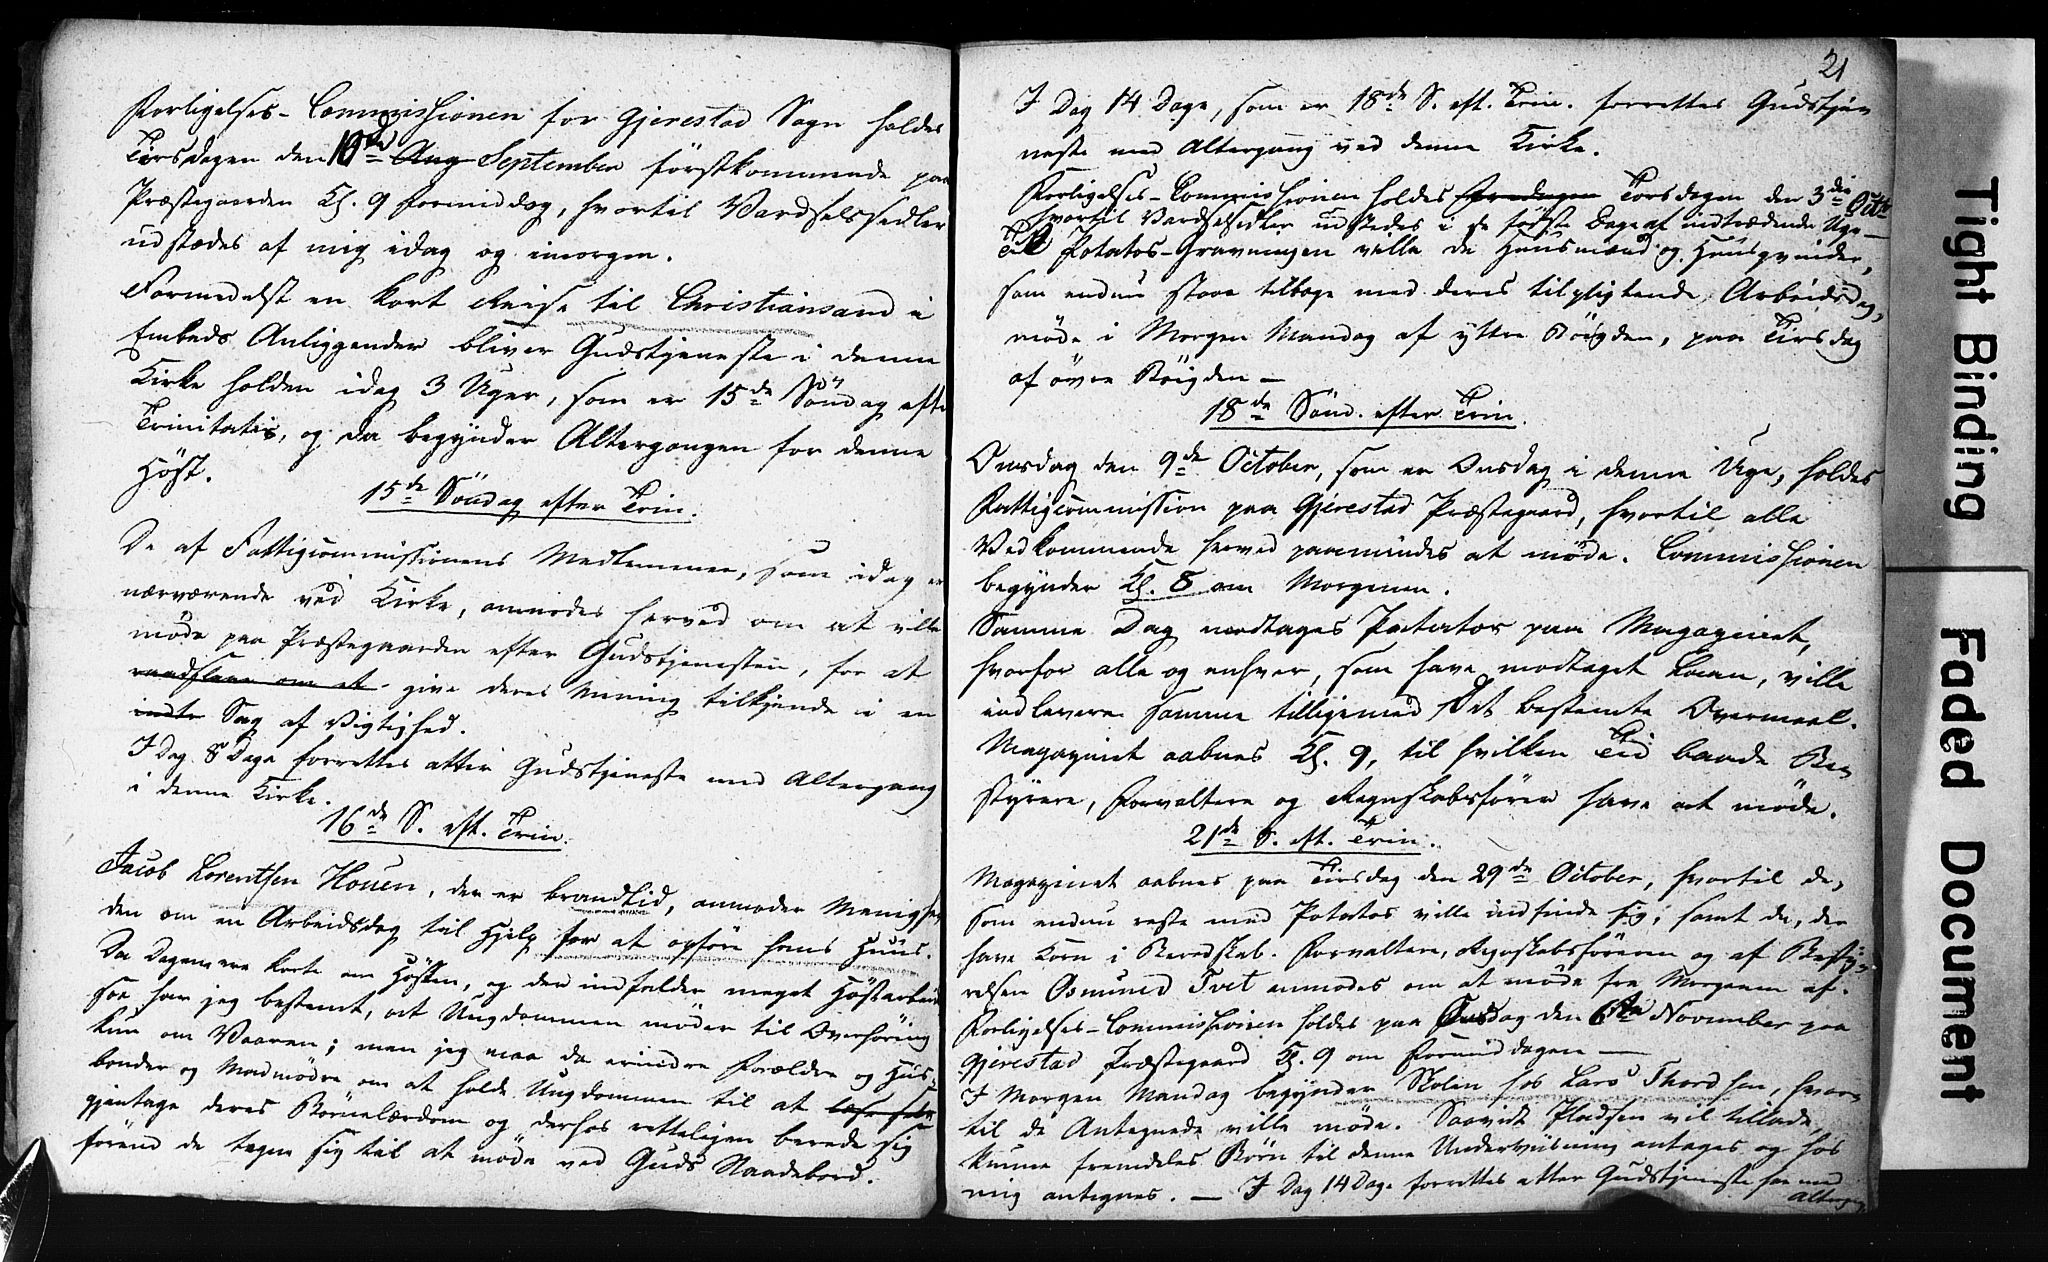 Forligelses-Commissionen for Gjerestad Sogn holdes
Tirsdagen den 10de Aug September førstkommende paa
Præstegaarden Kl. 9 Formiddag, hvortil Vardselssedler
udstædes af mig idag og imorgen.
Formedelst en kort Reise til Christiansand i
Embeds Anliggender bliver Gudstjeneste i denne
Kirke holden idag 3 Uger, som er 15de Söndag efter
Trinitatis, og da begynder Altergangen for denne
Höst.
15de Söndag efter Trin.
De af Fattigcommissionens Medlemmer, som idag er
nærværende ved Kirke, anmodes herved om at ville
møde paa Præstegaarden efter Gudstjenesten, for at
raadslaae om et give deres Mening tilkjende i en
Sag af Vigtighed.
I Dag 8 Dage forrettes atter Gudstjeneste med Altergang
i denne Kirke.
16de S. eft. Trin.
Jacob Lorentsen Houen, der er brandlid, anmoder Menighe-
den om en Arbeidsdag til Hjelp for at opføre hans Huus.
Da Dagene ere korte om Høsten, og der indfalder meget Høstarbeide
saa har jeg bestemt, at Ungdommen møder til Overhøring
kun om Vaaren; men jeg maa da erindre Forældre og Hus-
bonder og Madmödre om at holde Ungdommen til at læse
gjentage deres Børnelærdom og derhos rettelig berede sig
förend de tager sig til at møde ved Guds Naadebord.
21
I Dag 14 Dage, som er 18de S. eft. Trin. forrettes Gudstje-
neste med Altergang ved denne Kirke.
Forligelses-Commissionen holdes Torsdagen den 3die Octbr
hvortil Vardselsedler udstedes i de første Dage af indtrædende Uge
Til Potatos-Gravningen ville de Huusmænd og Huusqvinder,
som endnu staae tilbage med deres tilpligtende Arbeidsdag,
møde i Morgen Mandag af yttre Böigden, paa Tirsdag
af øvre Böigden —
18de Sönd. efter Trin.
Onsdag den 9de October, som er Onsdag i denne Uge, holdes
Fattigcommission paa Gjerestad Præstegaard, hvortil alle
Vedkommende herved paamindes at møde. Commissionen
begynder Kl. 8 om Morgenen.
Samme Dag modtages Potatos paa Magazinet,
hvorfor alle og enhver, som have modtaget Laan, ville
indlevere samme tilligemed det bestemte Overmaal.
Magazinet aabnes Kl. 9, til hvilken Tid baade Be-
styrere, Forvaltere og Regnskabsfører have at møde.
21de S. eft. Trin.
Magazinet aabnes paa Tirsdag den 29de October, hvortil de,
som endnu reste med Potatos ville indfinde sig, samt de, der
have Korn i Beredskab. Forvaltere, Regnskabsføreren og af Besty-
relsen Osmund Tvet anmodes om at møde fra Morgenen af.
Forligelses-Commissionen holdes paa Onsdag den 6te November paa
Gjerestad Præstegaard Kl. 9 om Formiddagen —
I Morgen Mandag begynder Skolen hos Lars Thordsen, hvor-
til de Antegnede ville møde. Saavidt Pladsen vil tillade
kunne fremdeles Børn til denne Underviisning antages og hos
mig antegnes. — I Dag 14 Dage forrettes atter Gudstjeneste her med
Altergang
Tight Binding
Faded Document